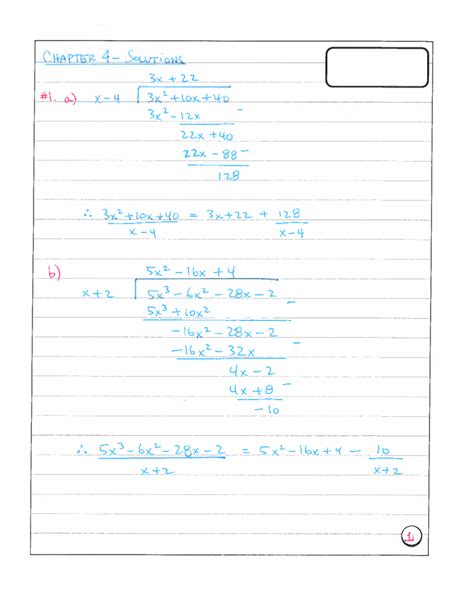 CHAPTER 4 - SOLUTIONS
3x + 22
#1. a) x-4 3x² + 10x + 40
3x² - 12x
22x + 40
22x - 88
128
∴ 3x² + 10x + 40 = 3x + 22 + 128
x-4 x-4
5x² - 16x + 4
b) x+2 5x³ - 6x² - 28x - 2
5x³ + 10x²
-16x² - 28x - 2
-16x² - 32x
4x - 2
4x + 8
-10
∴ 5x³ - 6x² - 28x - 2 = 5x² - 16x + 4 - 10
x+2 x+2
1